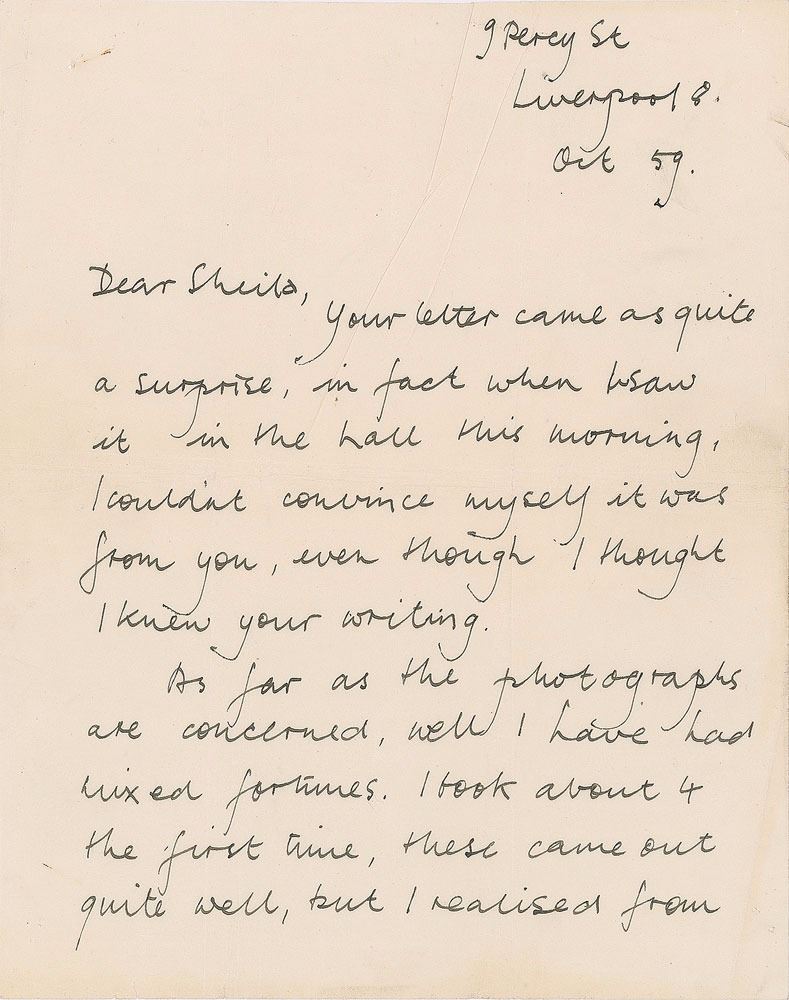 9 Percy St
Liverpool 8.
Oct 59.
Dear Sheila,
Your letter came as quite
a surprise, in fact when I saw
it in the hall this morning,
I couldn't convince myself it was
from you, even though I thought
I knew your writing.
As far as the photographs
are concerned, well I have had
mixed fortunes. I took about 4
the first time, these came out
quite well, but I realised from